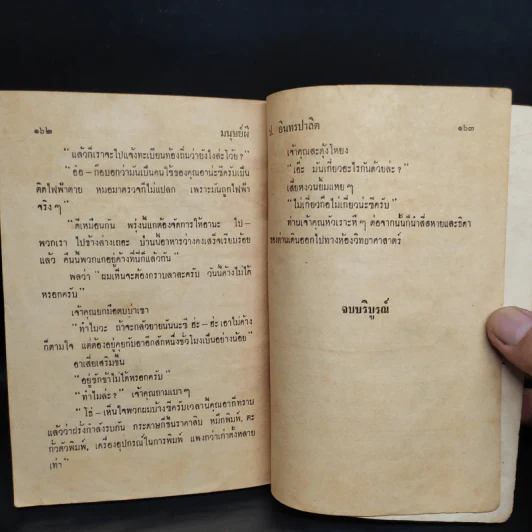 ๑๖๒ มนุษย์ผี
"แล้วก็เราจะไปแจ้งทะเบียนท้องถิ่นว่ายังไงล่ะโว้ย?"
"อ๋อ - ก็บอกว่ามันเป็นคนใช้ของคุณอานะซีครับเป็น
ติดไฟฟ้าตาย หมอมาตรวจก็ไม่แปลก เพราะมันถูกไฟฟ้า
จริง ๆ"
"ดีเหมือนกัน พรุ่งนี้แกต้องจัดการให้อานะ ไป -
พวกเรา ไปข้างล่างเถอะ ป่านนี้อาหารว่างคงเสร็จเรียบร้อย
แล้ว คืนนี้พวกแกอยู่ค้างที่นี่ก็แล้วกัน"
พลว่า "ผมเห็นจะต้องกราบลาละครับ วันนี้ค้างไม่ได้
หรอกครับ"
เจ้าคุณยกมือตบบ่าเขา
"ทำไมวะ ถ้าจะกลัวยายนันนะซี ฮ่ะ - ฮ่ะ เอาไม่ค้าง
ก็ตามใจ แต่ต้องอยู่คุยกับอาอีกสักหนึ่งชั่วโมงเป็นอย่างน้อย"
อาเสี่ยเสริมขึ้น
"อยู่ซักช้าไม่ได้หรอกครับ"
"ทำไมล่ะ?" เจ้าคุณถามเบา ๆ
"โธ่ - เห็นใจพวกผมบ้างซีครับเวลานี้คุณอาก็ทราบ
แล้วว่าฝรั่งกำลังรบกัน กระดาษก็ขึ้นราคาลิบ หมึกพิมพ์, ตะ
กั่วตัวพิมพ์, เครื่องอุปกรณ์ในการพิมพ์ แพงกว่าเก่าตั้งหลาย
เท่า"
ป. อินทรปาลิต ๑๖๓
เจ้าคุณสะดุ้งโหยง
"เอ๊ะ มันเกี่ยวอะไรกันด้วยล่ะ?"
เสี่ยหงวนยิ้มแหย ๆ
"ไม่เกี่ยวก็อไม่เกี่ยวน่ะซีครับ"
ท่านเจ้าคุณหัวเราะหึ ๆ ต่อจากนั้นก็นำสี่สหายและธิดา
ของท่านเดินออกไปทางห้องวิทยาศาสตร์
จบบริบูรณ์